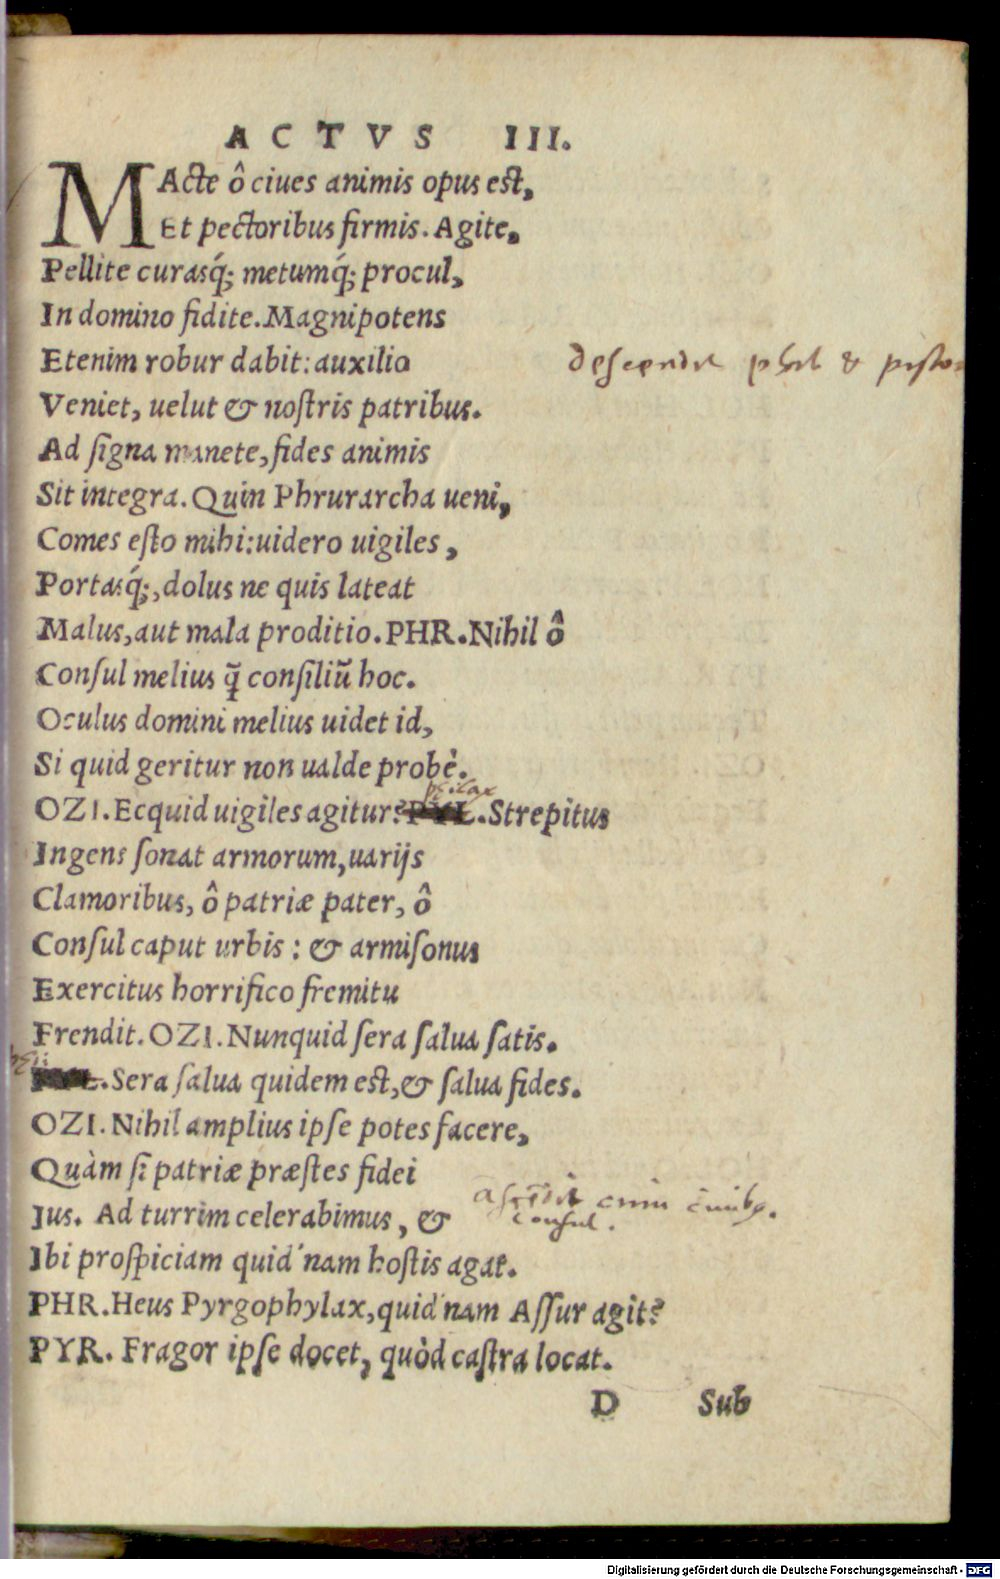 ACTVS III.
MActe ô ciues animis opus est,
Et pectoribus firmis. Agite,
Pellite curasq́; metumq́; procul,
In domino fidite. Magnipotens
Etenim robur dabit: auxilio
descendit phil & pisto
Veniet, uelut & nostris patribus.
Ad signa manete, fides animis
Sit integra. Quin Phrurarcha ueni,
Comes esto mihi: uidero uigiles,
Portasq́;, dolus ne quis lateat
Malus, aut mala proditio. PHR. Nihil ô
Consul melius q̃ consiliũ hoc.
Oculus domini melius uidet id,
Si quid geritur non ualde probè.
OZI. Ecquid uigiles agitur? PYL. Strepitus
Ingens sonat armorum, uarijs
Clamoribus, ô patriæ pater, ô
Consul caput urbis: & armisonus
Exercitus horrifico fremitu
Frendit. OZI. Nunquid sera salua satis.
PYL. Sera salua quidem est, & salua fides.
OZI. Nihil amplius ipse potes facere,
Quàm si patriæ præstes fidei
Ius. Ad turrim celerabimus, &
ascendit cum
consul.
Ibi prospiciam quid'nam hostis agat.
PHR. Heus Pyrgophylax, quid'nam Assur agit?
PYR. Fragor ipse docet, quòd castra locat.
D Sub
Digitalisierung gefördert durch die Deutsche Forschungsgemeinschaft - DFG